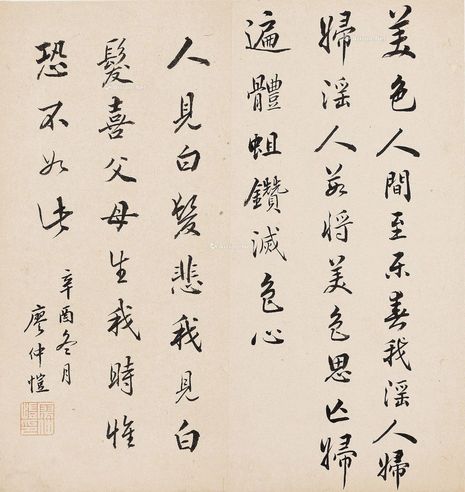 美色人間至樂春我淫人婦
婦淫人若將美色思亡婦
遍體蛆鑽滅色心
人見白髮悲我見白
髮喜父母生我時惟
恐不如此
辛酉冬月
廖仲愷